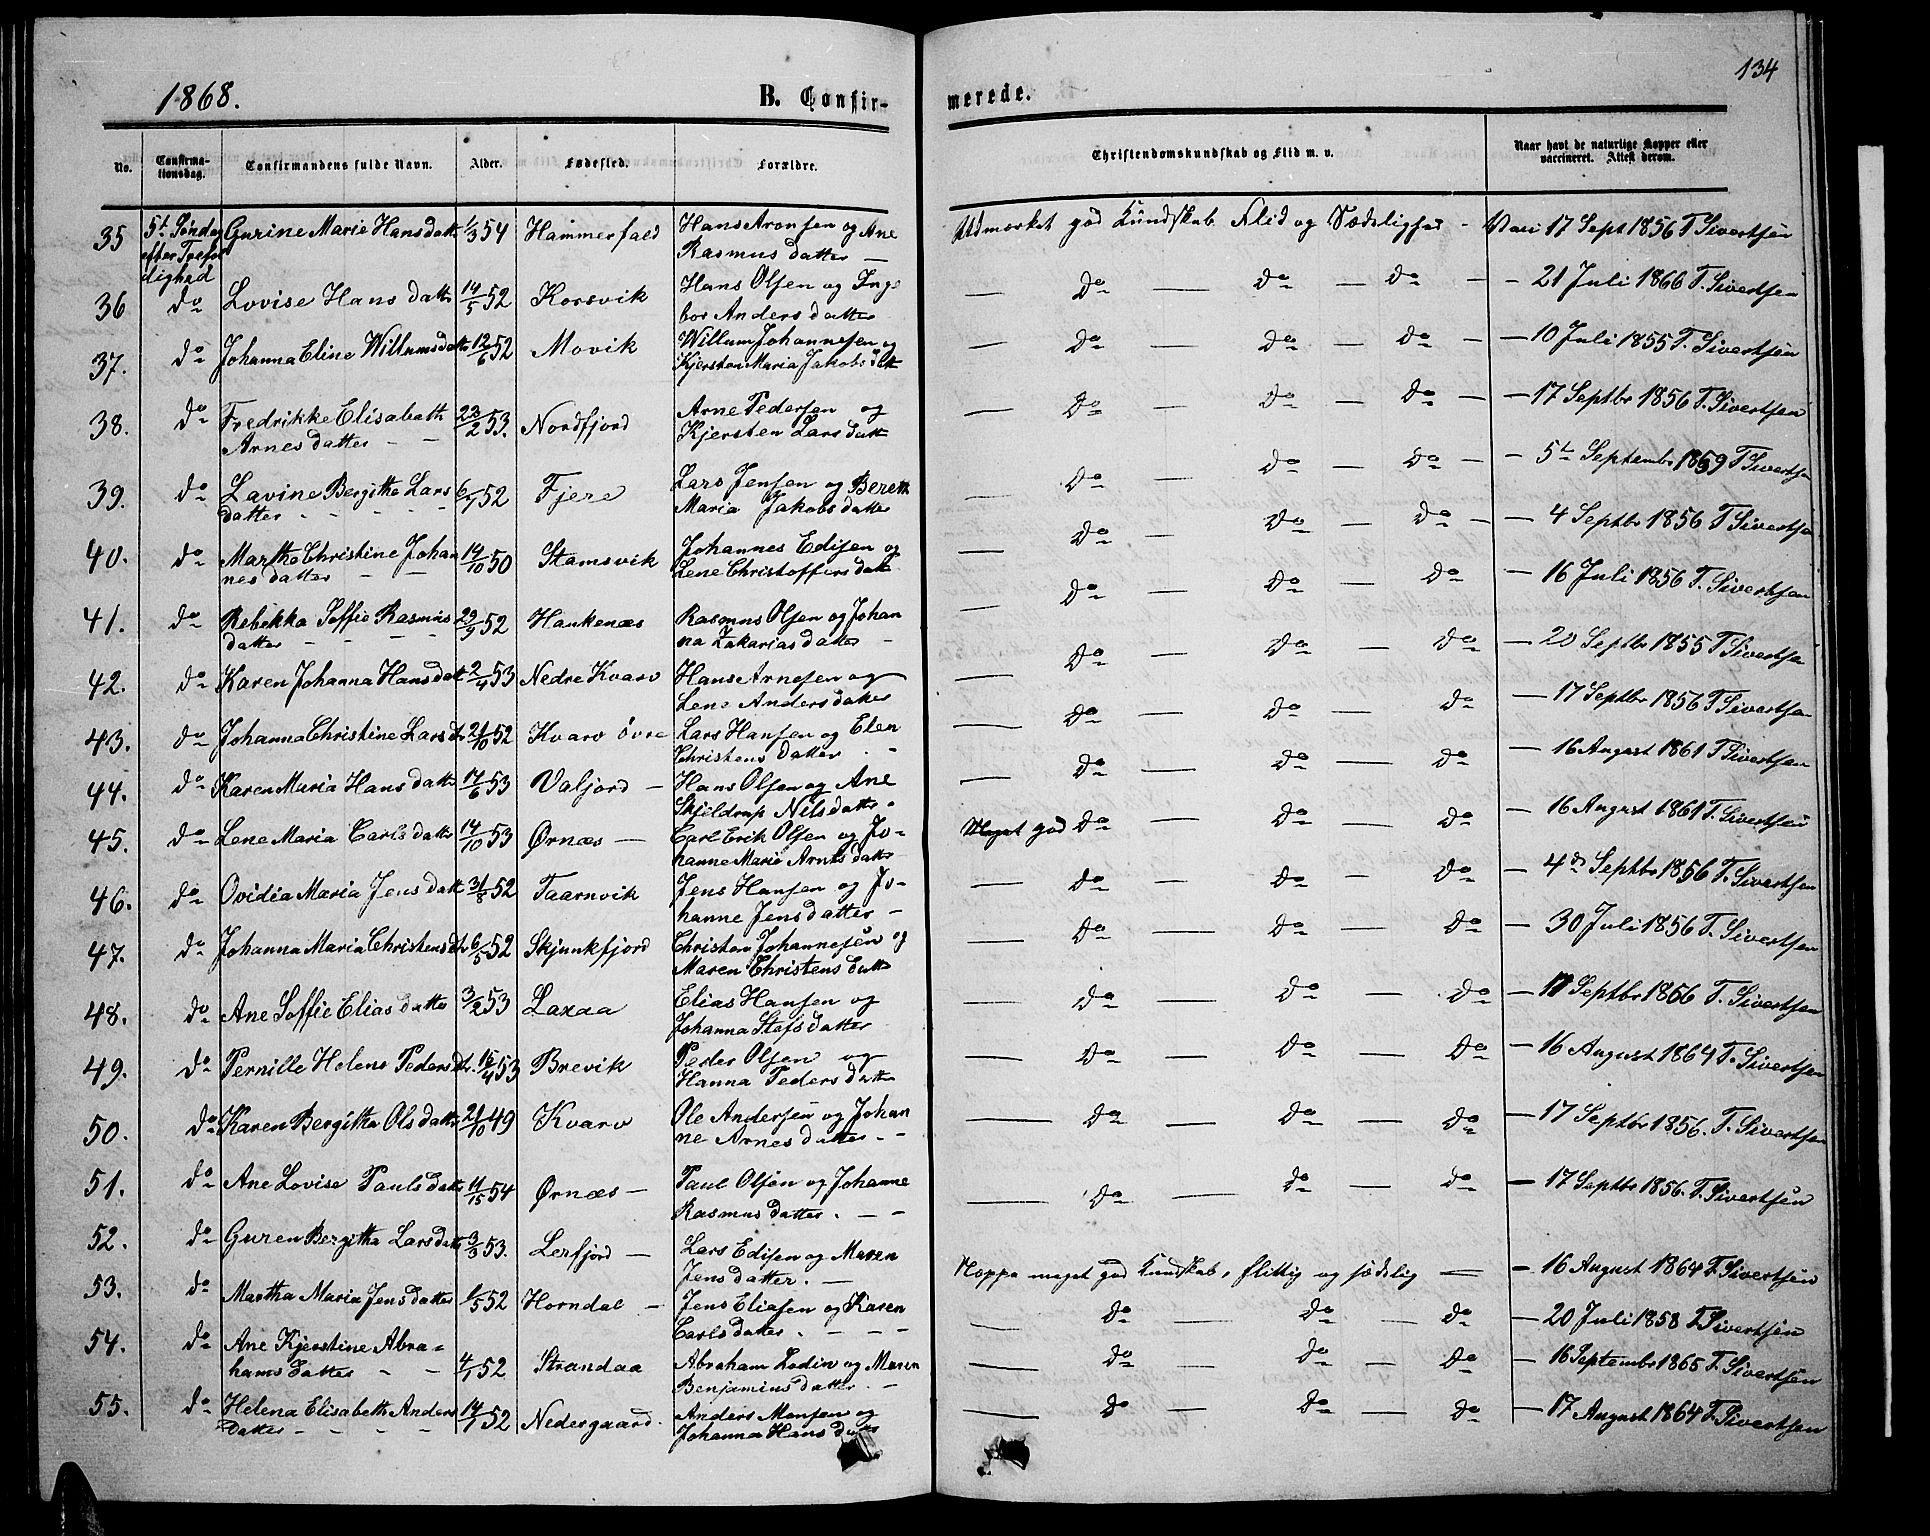 1868.
B. Confir-
merede.
134
No.
Confirma-
tionsdag.
Confirmandens fulde Navn.
Alder.
Fødested.
Forældre.
Christendomskundskab og Flid m. v.
Naar havt de naturlige Kopper eller
vaccineret. Attest derom.
35 5t Søndag Gurine Marie Hansdatt. 1/3 54 Hammerfald Hans Aronsen og Ane Udmærket god Kundskab Flid og Sædelighed - Vacc 17 Sept 1856 T. Sivertsen
efter Trefol Rasmus datter —
dighed
36 do Lovise Hans datter 14/5 52 Korsvik Hans Olsen og Inge — do — do — do — - 21 Juli 1866 T. Sivertsen
bor Anders datter
37. do Johanna Eline Willumsdatter 12/6 52 Movik Willum Johannesen og — do — do — do — — 10 Juli 1855 T. Sivertsen
Kjersten Maria Jakobsdtr
38. do Fredrikke Elisabeth 23/2 53. Nordfjord Arne Pedersen og — do — do — do — — 17 Septbr 1856 T. Sivertsen
Arnes datter - - Kjersten Lars datt
39. do Lavine Bergithe Lars 6/7 52 Fjere Lars Jensen og Bereth — do — do — do — - 5te Septembr 1859 T Sivertsen
datter - - - - Maria Jakobs datter
40. do Marthe Christine Johan 14/10 50 Stamsvik Johannes Edisen og — do — do — do — — 4 Septbr 1856 T Sivertsen
nes datter - - Lene Christoffers datt
41. do Rebekka Soffie Rasmus 29/9 52 Haukenæs Rasmus Olsen og Johan — do — do — do — 16 Juli 1856 T. Sivertsen
datter - - - na Zakarias datter -
42. do Karen Johanna Hansdatt 2/4 53 Nedre Kvarv Hans Arnesen og — do — do — do — 20 Septbr 1855 T Sivertsen
Lene Anders datter
43. do Johanna Christine Lars dtr 21/10 52 Kvarv övre Lars Hansen og Elen — do — do — do — 17 Septbr 1856 T Sivertsen
Christens datter - -
44. do Karen Maria Hans datter 14/6 53 Valjord — Hans Olsen og Ane — do — do — do — 16 August 1861 T Sivertsen
Skjeldrup Nilsdatter -
45. do Lene Maria Carls datter 14/10 53 Ørnæs — Carl Erik Olsen og Jo- Meget god do — do — do — 16 August 1861 T. Sivertsen
hanne Marie Arnts datter
46. do Ovidia Maria Jens datt 31/8 52 Taarnvik Jens Hansen og Jo- — do — do — do — 4de Septbr 1856 T. Sivertsen
hanne Jens datter -
47. do Johanna Maria Christens dtr 6/5 52 Skjunkfjord Christen Johannesen og — do — do — do — 30 Juli 1856 T. Sivertsen
Maren Christens datter
48. do Ane Soffie Elias datter 3/2 53 Laxaa Elias Hansen og — do — do — do — 17 Septbr 1856 T. Sivertsen
Johanna Stefs datter
49. do Pernille Helene Peders dtr. 15/4 53 Brevik Peder Olsen og — do — do — do — 16 August 1864 T. Sivertsen
Hanna Peders datter
50. do Karen Bergitha Ols datter 21/10 49 Kvarv Ole Andersen og Johan — do — do — do — 17 Septbr 1856. T. Sivertsen
ne Arnes datter - -
51. do Ane Lovise Pauls datter 11/15 54 Ørnæs — Paul Olsen og Johanne — do — do — do — 17 Septbr 1856. T. Sivertsen
Rasmus datter . - -
52. do Guren Bergitha Lars datt 3/3 53. Lerfjord — Lars Edisen og Maren Noppe meget god Kundskab, flittig og sædelig — - 16 August 1864 T. Sivertsen
Jens datter. —
53. do Martha Maria Jens datter 6/5 52 Horndal — Jens Eliasen og Karen — do — do — do — 20 Juli 1858 T Sivertsen
Carls datter. - - -
54. do Ane Kjerstine Abra-
hams datter - - 4/1 52 Strandaa Abraham Lodin og Maren — do — do — do — 16 Septembr 1865 T. Sivertsen
Benjamins datter. -
55. do Helena Elisabeth Anders 14/1 52 Nedergaard. Anders Monsen og — do — do — do — 17 August 1864 T. Sivertsen
datter - - - - Johanna Hans datter